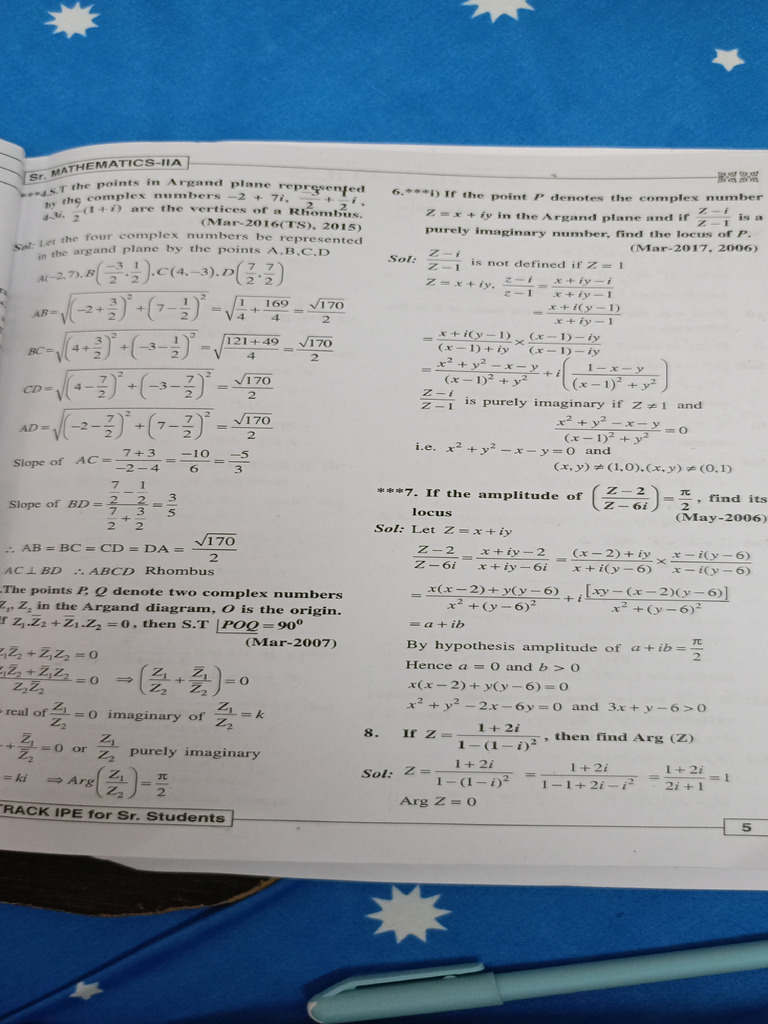 Sr. MATHEMATICS-IIA
***4.S.T the points in Argand plane represented
by the complex numbers −2 + 7i, −3/2 + 1/2 i,
4-3i, 7/2(1+i) are the vertices of a Rhombus.
(Mar-2016(TS), 2015)
Sol: Let the four complex numbers be represented
in the argand plane by the points A,B,C,D
A(−2,7), B(−3/2, 1/2), C(4,−3), D(7/2, 7/2)
AB = √((−2+3/2)² + (7−1/2)²) = √(1/4 + 169/4) = √170/2
BC = √((4+3/2)² + (−3−1/2)²) = √((121+49)/4) = √170/2
CD = √((4−7/2)² + (−3−7/2)²) = √170/2
AD = √((−2−7/2)² + (7−7/2)²) = √170/2
Slope of AC = (7+3)/(−2−4) = −10/6 = −5/3
Slope of BD = (7/2 − 1/2)/(7/2 + 3/2) = 3/5
∴ AB = BC = CD = DA = √170/2
AC ⊥ BD ∴ ABCD Rhombus
.The points P, Q denote two complex numbers
Z₁, Z₂ in the Argand diagram, O is the origin.
If Z₁.Z̅₂ + Z̅₁.Z₂ = 0, then S.T |POQ = 90⁰
(Mar-2007)
Z₁Z̅₂ + Z̅₁Z₂ = 0
(Z₁Z̅₂ + Z̅₁Z₂)/(Z₂Z̅₂) = 0 ⇒ (Z₁/Z₂ + Z̅₁/Z̅₂) = 0
real of Z₁/Z₂ = 0 imaginary of Z₁/Z₂ = k
+ Z̅₁/Z̅₂ = 0 or Z₁/Z₂ purely imaginary
= ki ⇒ Arg(Z₁/Z₂) = π/2
TRACK IPE for Sr. Students
6.***i) If the point P denotes the complex number
Z = x + iy in the Argand plane and if (Z−i)/(Z−1) is a
purely imaginary number, find the locus of P.
(Mar-2017, 2006)
Sol: (Z−i)/(Z−1) is not defined if Z = 1
Z = x + iy, (z−i)/(z−1) = (x+iy−i)/(x+iy−1)
= (x+i(y−1))/(x+iy−1)
= (x+i(y−1))/((x−1)+iy) × ((x−1)−iy)/((x−1)−iy)
= (x²+y²−x−y)/((x−1)²+y²) + i((1−x−y)/((x−1)²+y²))
(Z−i)/(Z−1) is purely imaginary if Z ≠ 1 and
(x²+y²−x−y)/((x−1)²+y²) = 0
i.e. x² + y² − x − y = 0 and
(x,y) ≠ (1,0),(x,y) ≠ (0,1)
***7. If the amplitude of ((Z−2)/(Z−6i)) = π/2, find its
locus (May-2006)
Sol: Let Z = x + iy
(Z−2)/(Z−6i) = (x+iy−2)/(x+iy−6i) = ((x−2)+iy)/(x+i(y−6)) × (x−i(y−6))/(x−i(y−6))
= (x(x−2)+y(y−6))/(x²+(y−6)²) + i [xy−(x−2)(y−6)]/(x²+(y−6)²)
= a + ib
By hypothesis amplitude of a + ib = π/2
Hence a = 0 and b > 0
x(x−2) + y(y−6) = 0
x² + y² − 2x − 6y = 0 and 3x + y − 6 > 0
8. If Z = (1+2i)/(1−(1−i)²), then find Arg (Z)
Sol: Z = (1+2i)/(1−(1−i)²) = (1+2i)/(1−1+2i−i²) = (1+2i)/(2i+1) = 1
Arg Z = 0
5